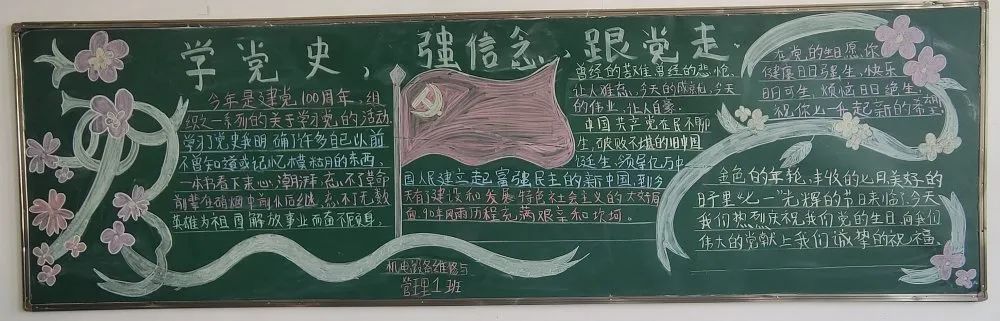 学党史、强信念、跟党走.
今年是建党100周年,组
织一系列的关于学习党的活动
学习党史我明确了许多自己以前
不曾知道或记忆模糊的东西,
一本书看下来心潮澎湃,忘不了革命
前辈在硝烟中前仆后继,忘不了无数
英雄为祖国解放事业而奋不顾身,
曾经的苦难曾经的悲怆,
让人难忘,今天的成就,今天
的伟业,让人自豪.
中国共产党在民不聊
生,破败不堪的旧中国
诞生,领导亿万中
国人民建立起富强民主的新中国,到今
天有了建设和发展特色社会主义的大好局
面,90年风雨历程充满艰辛和坎坷.
机电设备维修与
管理1班
在党的生日,愿你
健康日日强生,快乐
明可生,烦恼日日绝生,
祝你一升起新的希望
金色的年轮,丰收的七月美好的
日子里"七一"光辉的节日来临了,今天
我们热烈庆祝我们党的生日,向我们
伟大的党献上我们诚挚的祝福.